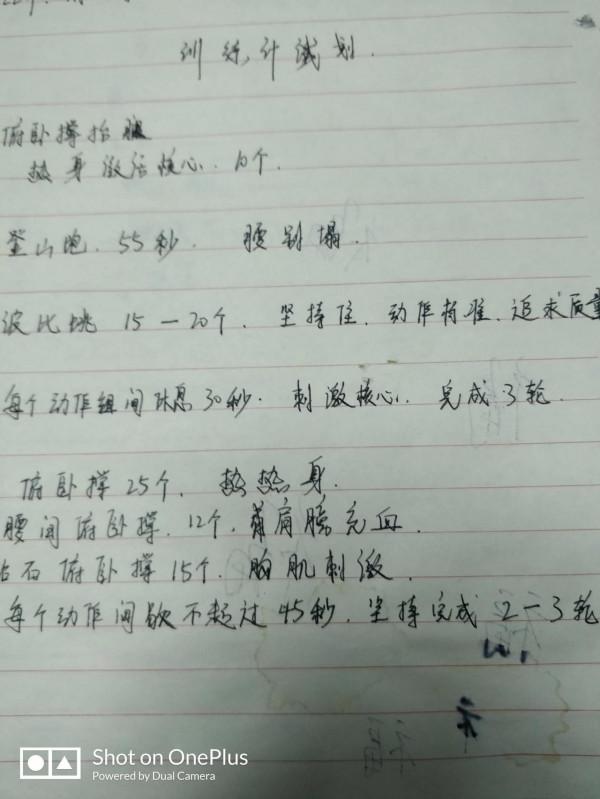 训练计划.
俯卧撑抬腿
热身激活核心. 10个.
登山跑. 55秒. 腰别塌.
波比跳 15—20个. 坚持住. 动作标准. 追求质量
每个动作组间休息30秒. 刺激核心. 完成3轮.
俯卧撑25个. 热热身.
腰间俯卧撑. 12个. 肩膀充血.
钻石俯卧撑15个. 胸肌刺激.
每个动作间歇不超过45秒. 坚持完成2—3轮
Shot on OnePlus
Powered by Dual Camera